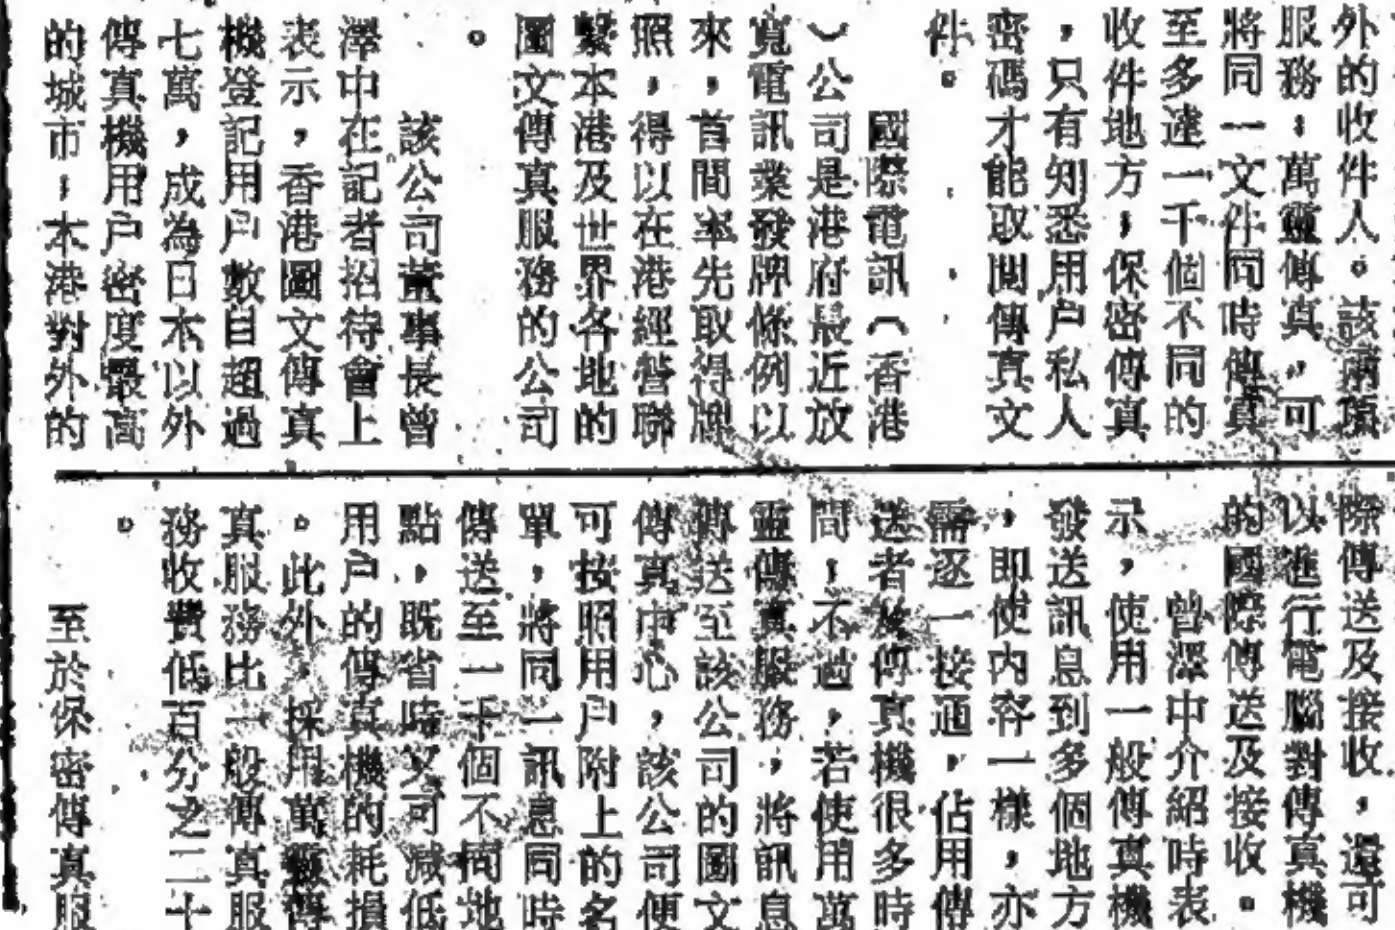 外的收件人。該兩項
服務：萬靈傳真，可
將同一文件同時傳真
至多達一千個不同的
收件地方；保密傳真
，只有知悉用户私人
密碼才能取閱傳真文
件。
國際電訊（香港
）公司是港府最近放
寬電訊業發牌條例以
來，首間率先取得牌
照，得以在港經營聯
繫本港及世界各地的
圖文傳真服務的公司
。
該公司董事長曾
澤中在記者招待會上
表示，香港圖文傳真
機登記用户數自超過
七萬，成為日本以外
傳真機用户密度最高
的城市；本港對外的
際傳送及接收，還可
以進行電腦對傳真機
的國際傳送及接收。
曾澤中介紹時表
示，使用一般傳真機
發送訊息到多個地方
，即使內容一樣，亦
需逐一接通，佔用傳
送者及傳真機很多時
間；不過，若使用萬
靈傳真服務，將訊息
傳送至該公司的圖文
傳真中心，該公司便
可按照用户附上的名
單，將同一訊息同時
傳送至一千個不同地
點，既省時又可減低
用户的傳真機的耗損
。此外，採用萬靈傳
真服務比一般傳真服
務收費低百分之二十
。
至於保密傳真服